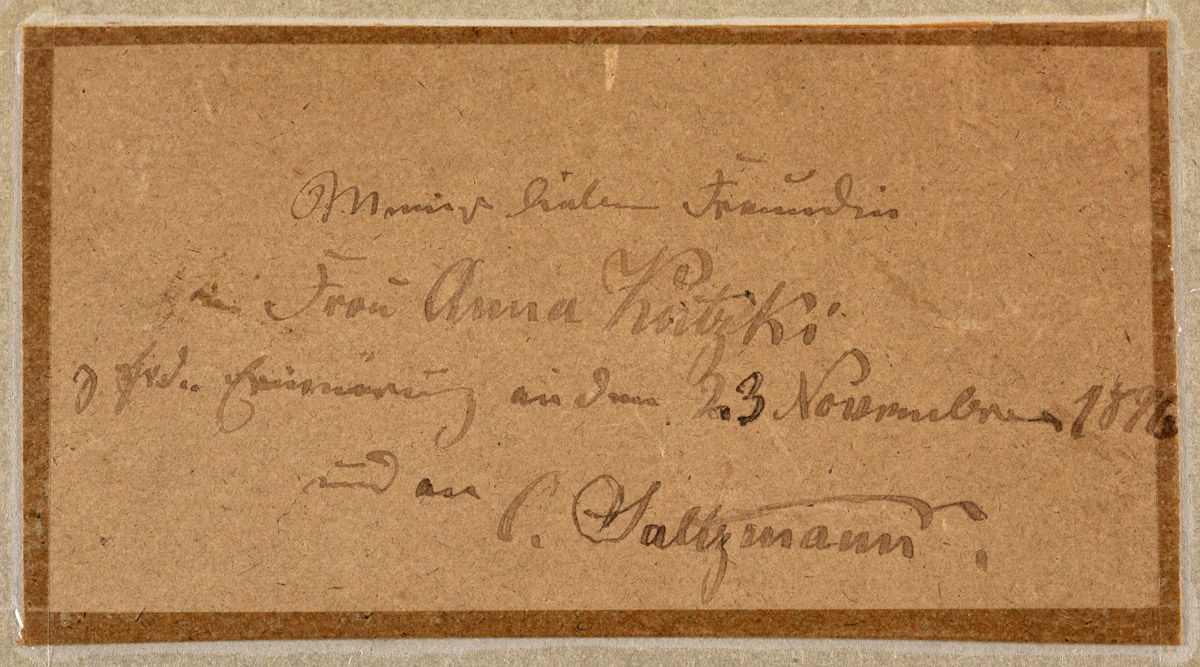 Meiner lieben Freundin
Frau Anna Kotzki
z. frdl. Erinnerung an den 23 November 1896
und an C. Saltzmann.